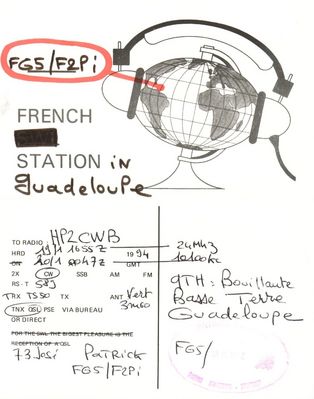 FG5/F2Pi
FRENCH
STATION in
Guadeloupe
TO RADIO: HP2CWB
HRD 19/1 1655Z 1994 24Mhz
ON 20/1 0047Z GMT 10100Kc
2X CW SSB AM FM
RS-T 589
TRX TS50 TX ANT Vert
TNX QSL PSE VIA BUREAU
OR DIRECT
QTH: Bouillante
Basse Terre
Guadeloupe
FOR THE SWL THE BIGEST PLEASURE IS THE
RECEPTION OF A QSL
73 José PATRICK
FG5/F2Pi
FG5/